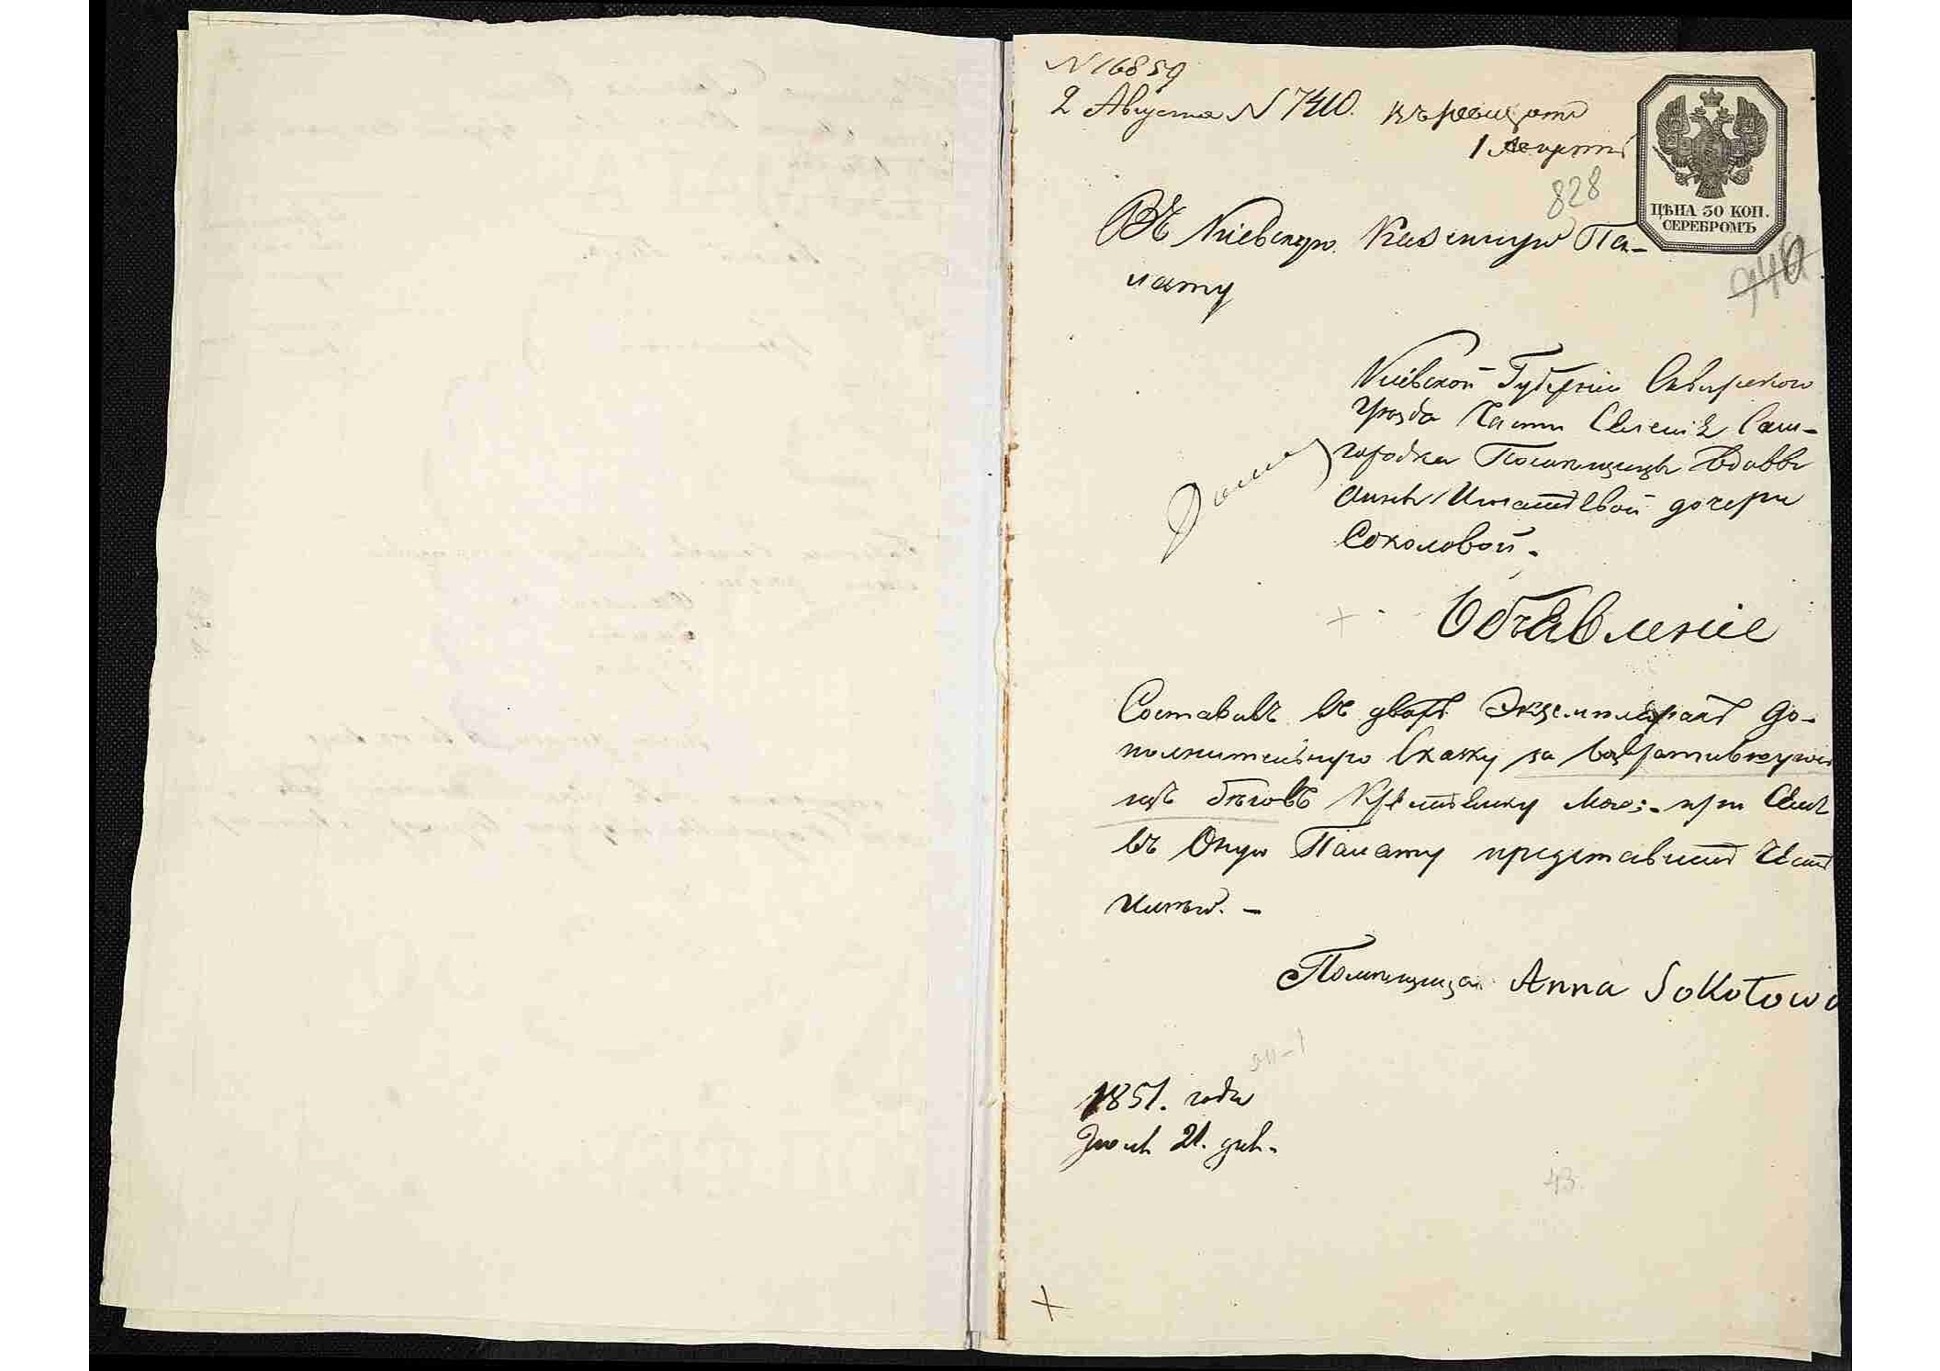 N 16859
2 Августа N 7410.
1 Августа
828
ЦѢНА 30 КОП.
СЕРЕБРОМЪ
740
Въ Кіевскую Казенную Па-
лату
Кіевской Губерніи Сквирскаго
уѣзда Части Селенія Сам-
городка Помѣщицы вдовы
Анны Игнатьевой дочери
Соколовой.
Объявленіе
Составивъ въ двухъ Экземплярахъ до-
полнительную Сказку за возвратившуюся
изъ бѣговъ Крестьянку мою; при семъ
въ Оную Палату представить Честь
имѣю. -
Помѣщица Anna Sokołowa
1851. года
Июля 21. дня.
43.